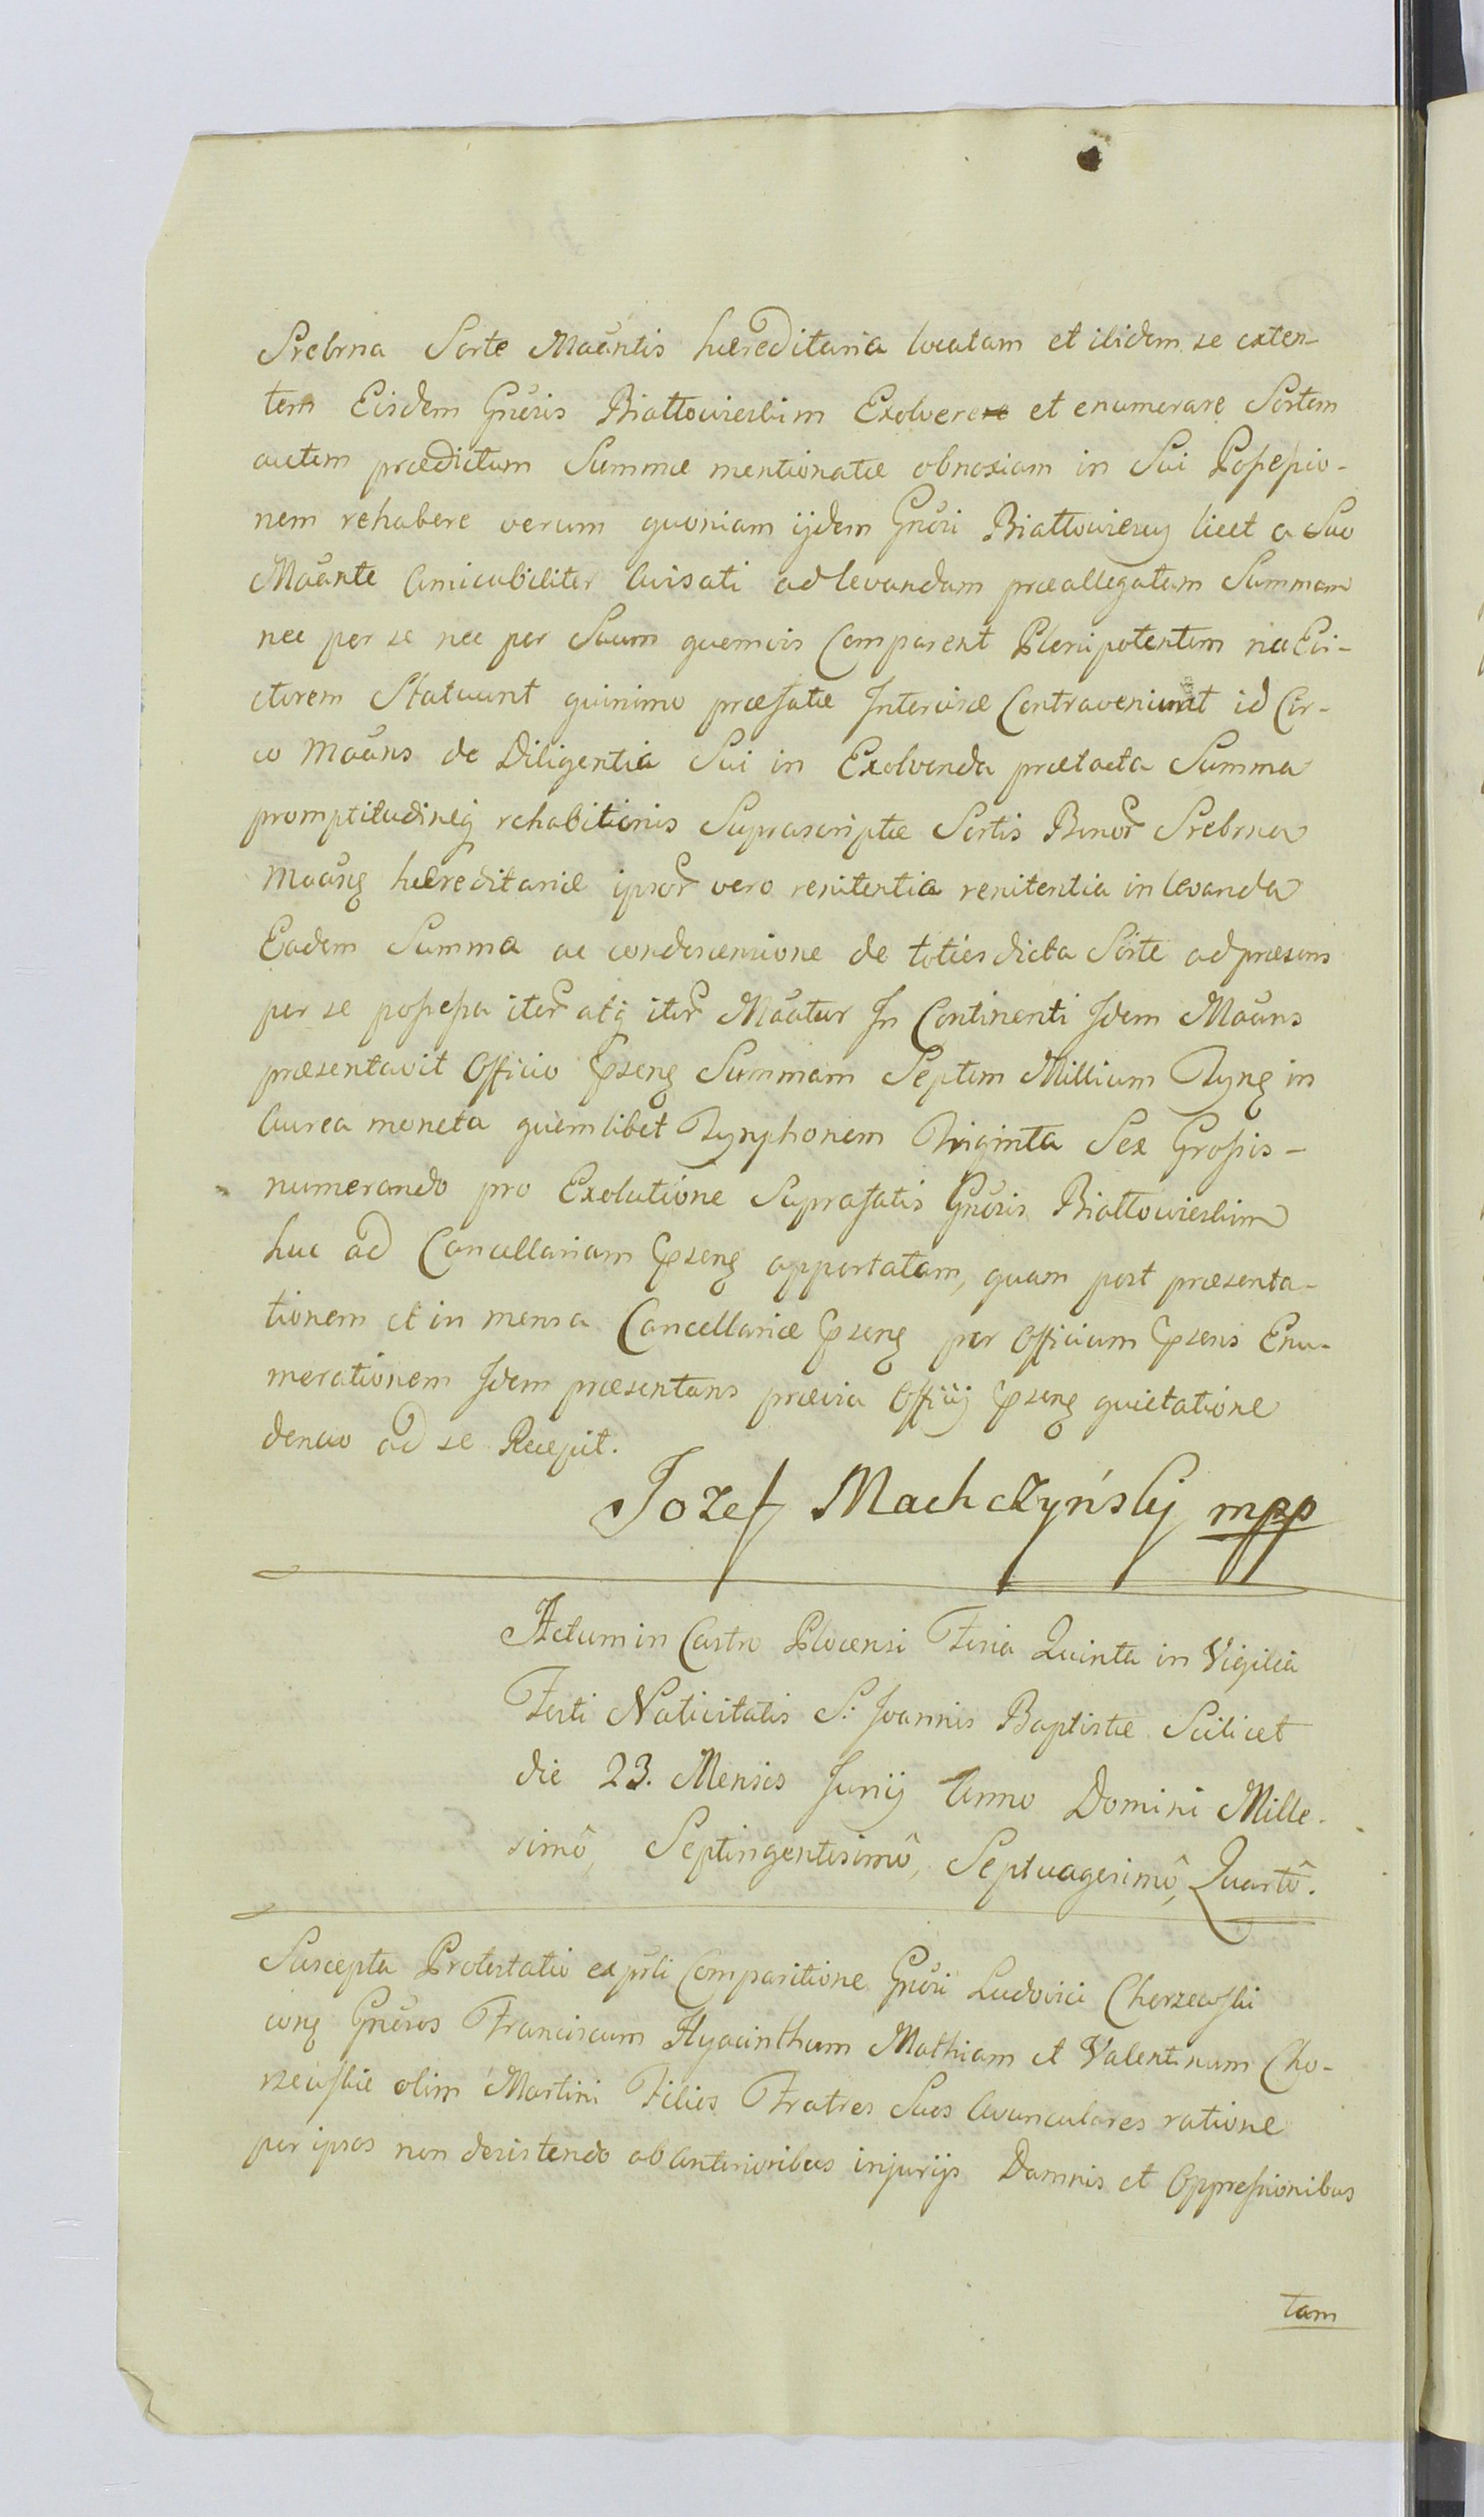 Srebrna Sorte Maântis hæreditaria locatam et ibidem se exten-
tem Eisdem Gnêris Białłowieskim Exolvere et enumerare Sortem
autem prædictam Summæ mentionatæ obnoxiam in Sui Possessio-
nem rehabere verum quoniam ijdem Gnêri Białłowiescy licet a Suo
Maânte Amicabiliter Avisati ad levandam præallegatam Summam
nec per se nec per Suum quemvis Comparent Plenipotentem nec Evi-
ctorem Statuunt quinimo præfatæ Intercisæ Contraveniunt id Cir-
co Maâns de Diligentia Sui in Exolvenda prætacta Summa
promptitudineq̃ rehabitionis Suprascriptæ Sortis Bonor̃ Srebrna
Maânꝫ hæreditariæ ipsor̃ vero renitentia renitentia in levanda
Eadem Summa ac condescensione de toties dicta Sorte ad præsens
per se possessa iter̃ atq̃ iter̃ Maâtur In Continenti Idem Maâns
præsentavit Officio Ꝓsenꝫ Summam Septem Millium Tynꝫ in
Aurea moneta quemlibet Tynphonem Triginta Sex Grossis -
numerando pro Exolutione Suprafatis Gnêris Białłowieskim
huc ad Cancellariam Ꝓsenꝫ apportatam, quam post præsenta-
tionem et in mensa Cancellariæ Ꝓsenꝫ per Officium Ꝓsens Enu-
merationem Idem præsentans prævia Offiij Ꝓsenꝫ quietatione
denuo ad se Recepit.
Jozef Machczyński mpp
Actum in Castro Plocensi Feria Quinta in Vigilia
Festi Nativitatis S: Joannis Baptistæ Scilicet
die 23. Mensis Junij Anno Domini Mille-
simô, Septingentesimô, Septuagesimô, Quartô.
Suscepta Protestatio ex pr̃li Comparitione Gnêri Ludovici Chorzewski
conꝫ Gnêros Franciscum Hyacinthum Mathiam et Valentinum Cho-
rzewskie olim Martini Filios Fratres Suos Avunculares ratione
per ipsos non desistendo ab Anterioribus injurijs Damnis et Oppressionibus
tam